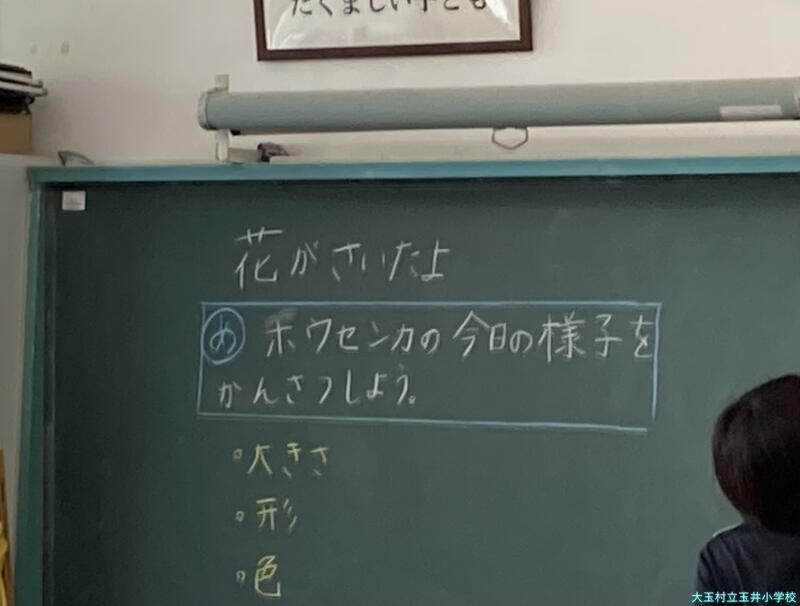 たくましい子ども
花がさいたよ
め ホウセンカの今日の様子を
かんさつしよう。
・大きさ
・形
・色
大玉村立玉井小学校